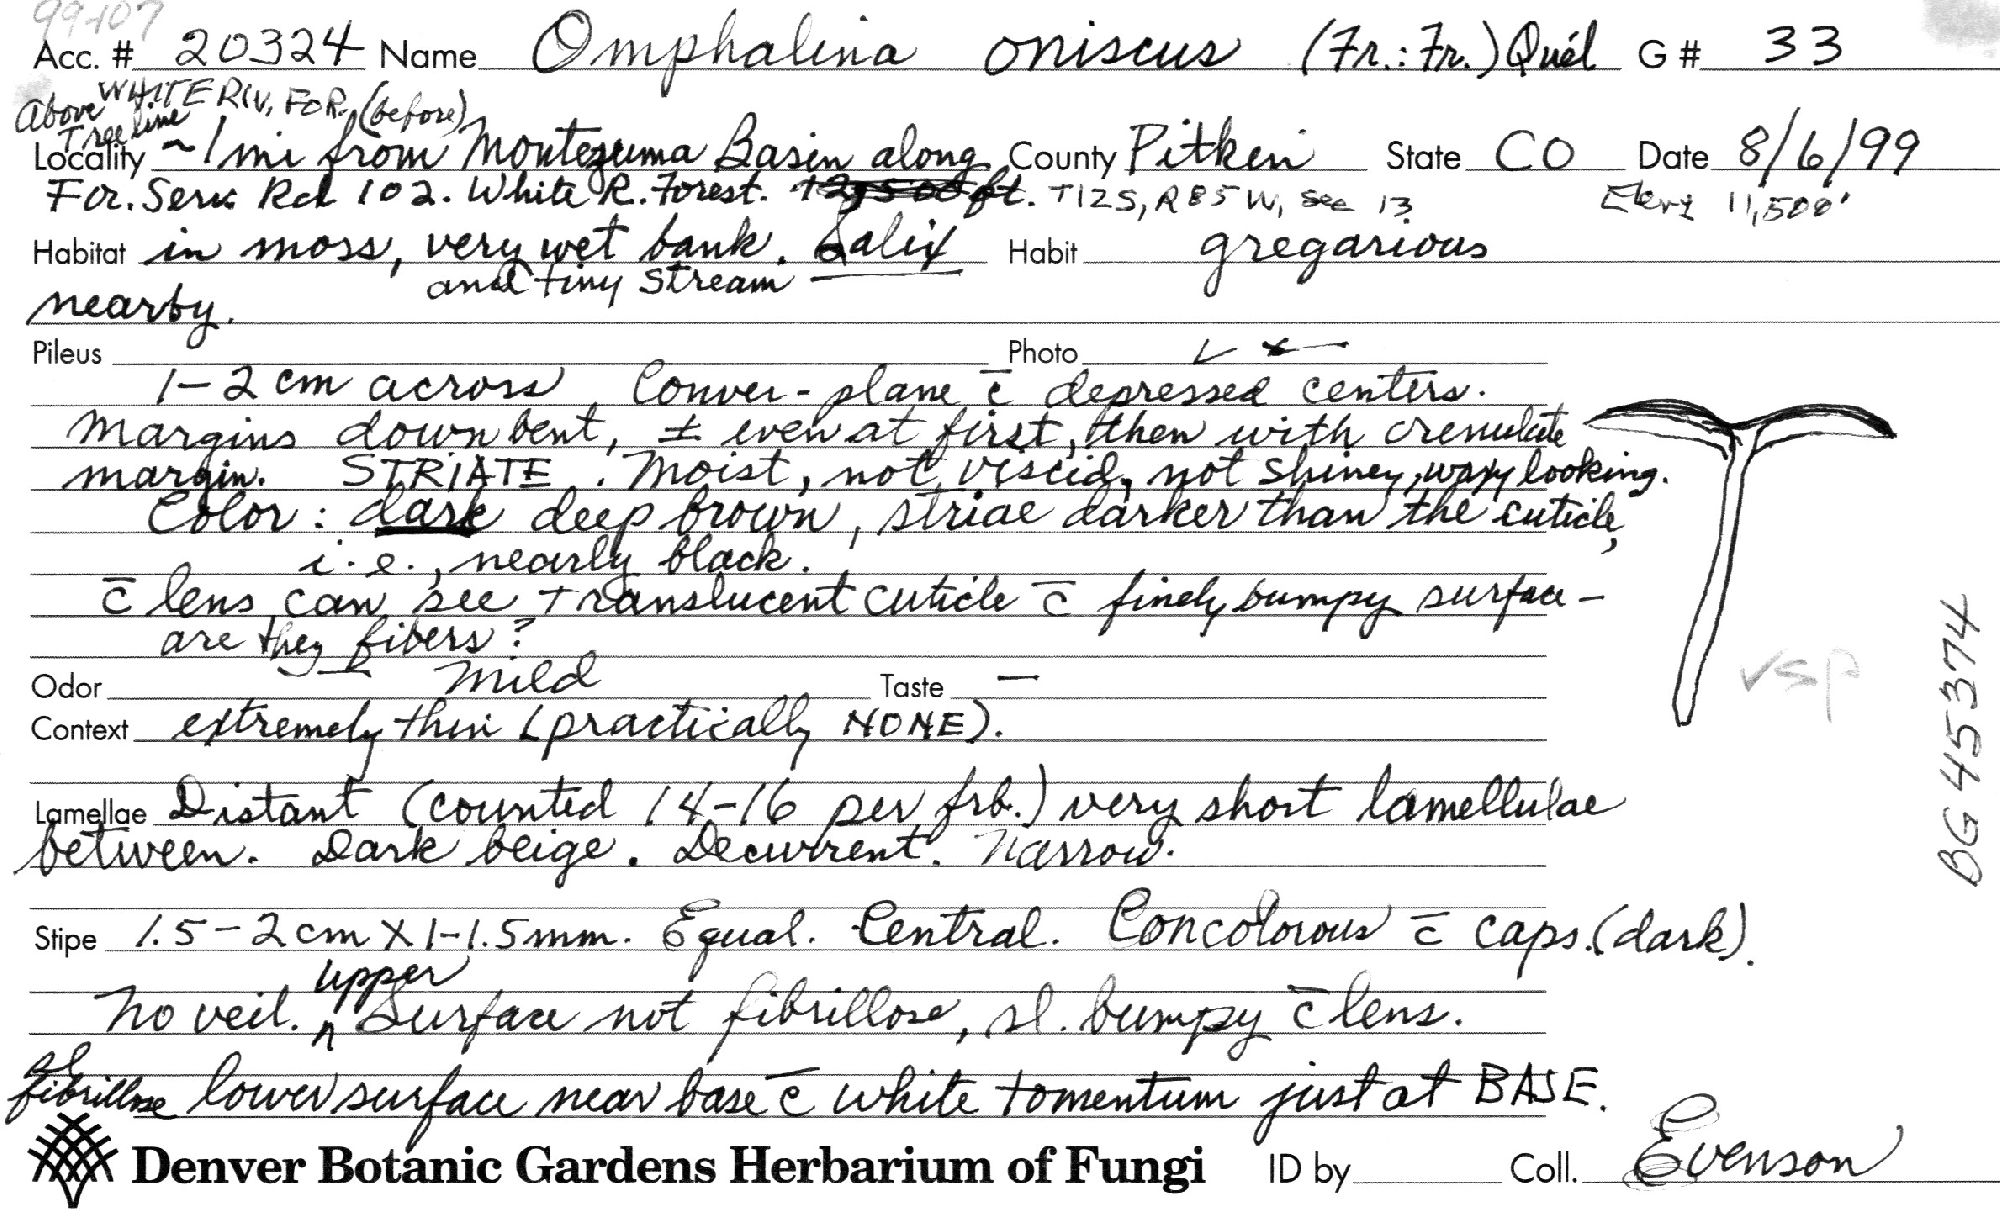 99-107
Acc. # 20324 Name Omphalina oniscus (Fr.:Fr.) Quél G # 33
Above Treeline WHITE RIV. FOR. (before)
Locality ~1 mi from Montezuma Basin along County Pitkin State CO Date 8/6/99
For. Serv. Rd 102. White R. Forest. 12,500 ft. T12S, R85W, Sec 13 Elev 11,500'
Habitat in moss, very wet bank. Salix Habit gregarious
and tiny stream
nearby.
Pileus Photo ✓
1-2 cm across, Convex-plane c̄ depressed centers.
Margins downbent, ± even at first, then with crenulate
margin. STRIATE. Moist, not viscid, not shiney, waxy looking.
Color: dark deep brown, striae darker than the cuticle,
i.e., nearly black.
c̄ lens can see translucent cuticle c̄ finely bumpy surface -
are they fibers?
vsp
Odor mild Taste —
Context extremely thin (practically NONE).
BG 45374
Lamellae Distant (counted 14-16 per frb.) very short lamellulae
between. Dark beige. Decurrent. Narrow.
Stipe 1.5-2 cm X 1-1.5 mm. Equal. Central. Concolorous c̄ caps. (dark).
upper
No veil. ^ Surface not fibrillose, sl. bumpy c̄ lens.
sl
fibrillose lower surface near base c̄ white tomentum just at BASE.
Denver Botanic Gardens Herbarium of Fungi ID by Coll. Evenson